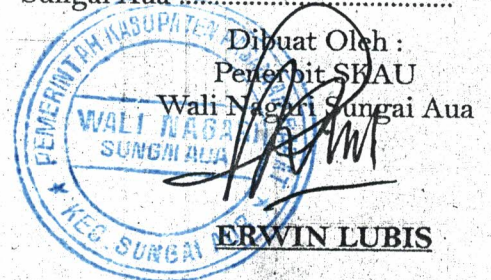 Sungai Aua ..........................................
Dibuat Oleh :
Penerbit SKAU
Wali Nagari Sungai Aua
PEMERINTAH KABUPATEN
WALI NAGARI
SUNGAI AUA
KEC. SUNGAI
ERWIN LUBIS